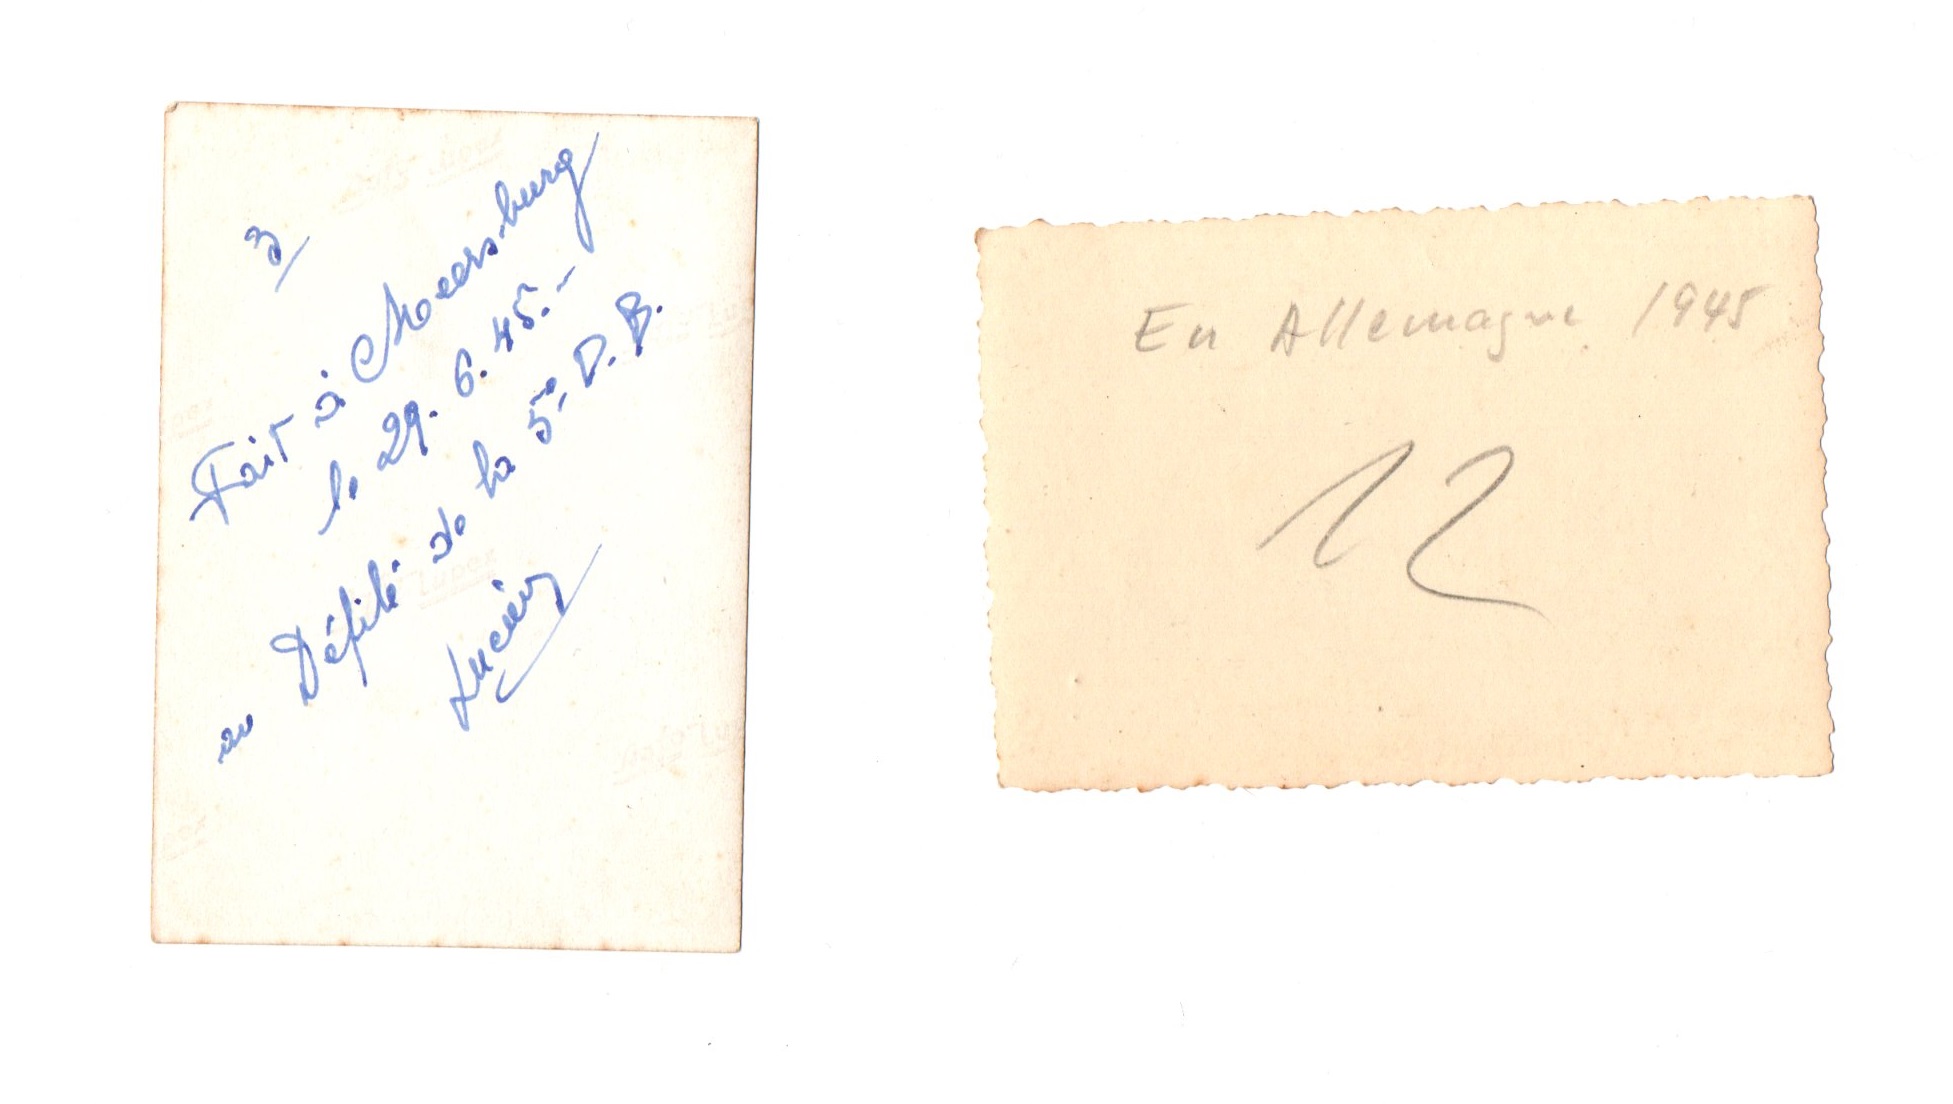 3
Fait à Meersburg
le 29.6.45.-
au Défilé de la 5e D.B.
Lucien
En Allemagne 1945
12